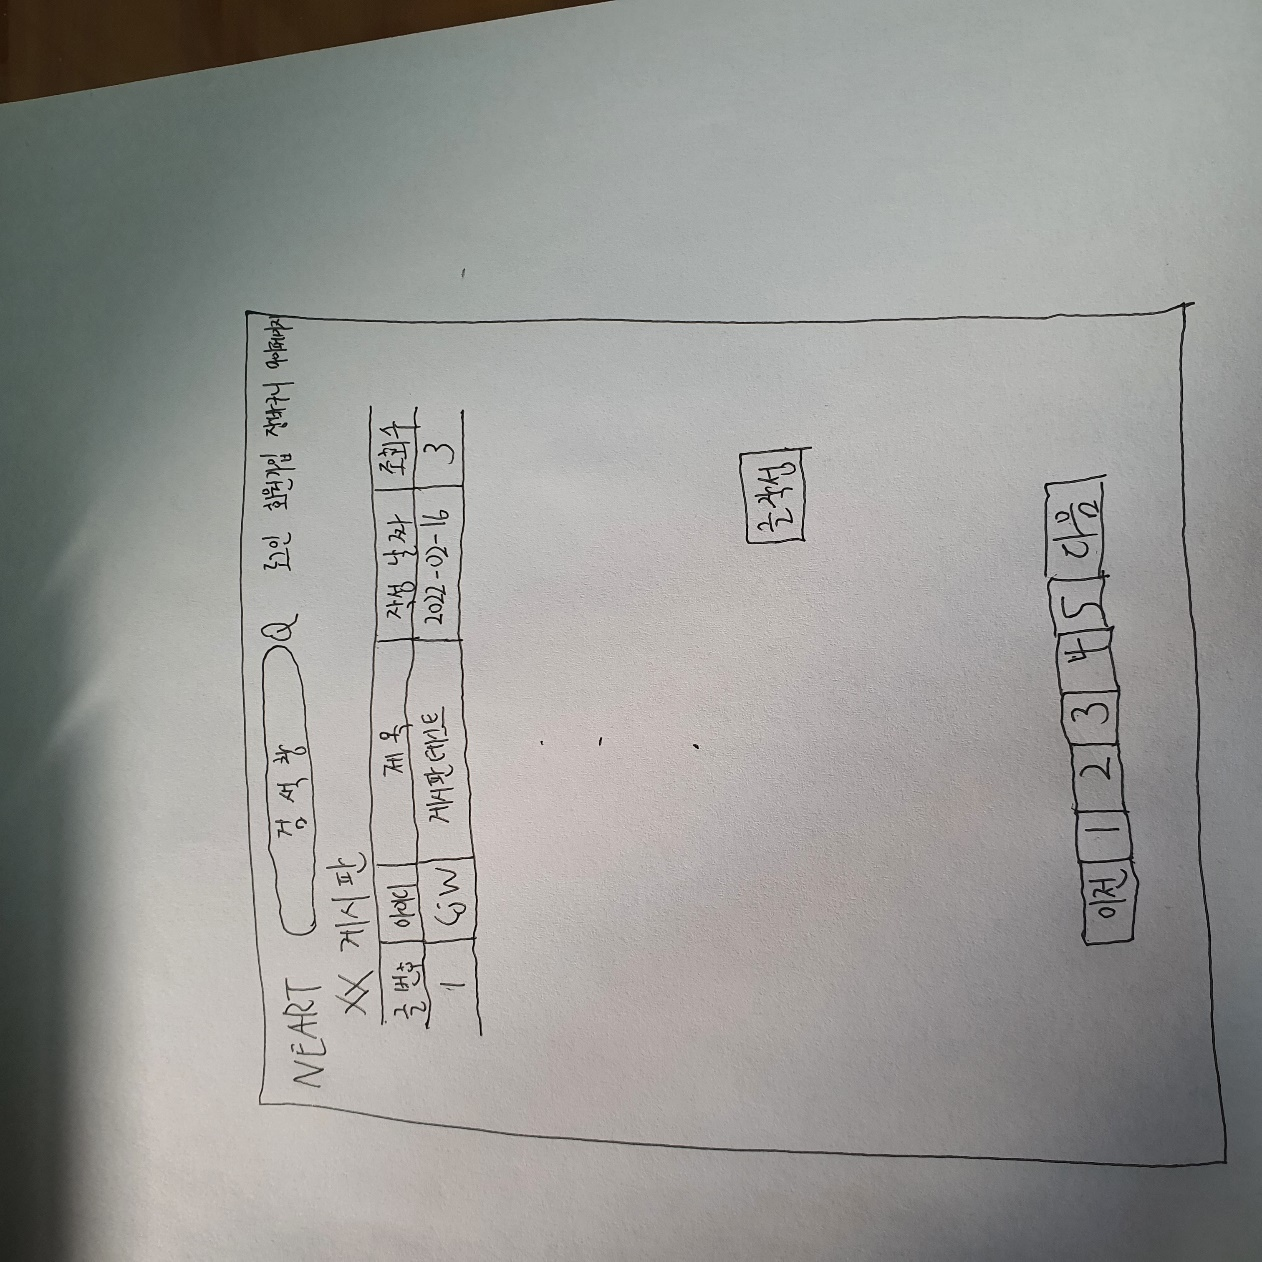 NEART 검색창 Q 로그인 회원가입 장바구니 마이페이지
XX 게시판
글번호 아이디 제목 작성 날짜 조회수
1 GJW 게시판테스트 2022-02-16 3
글작성
이전 1 2 3 4 5 다음